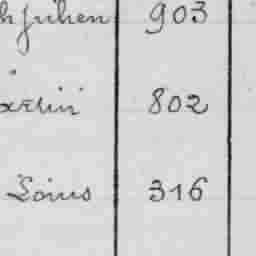 h Julien 903
artin 802
Louis 316